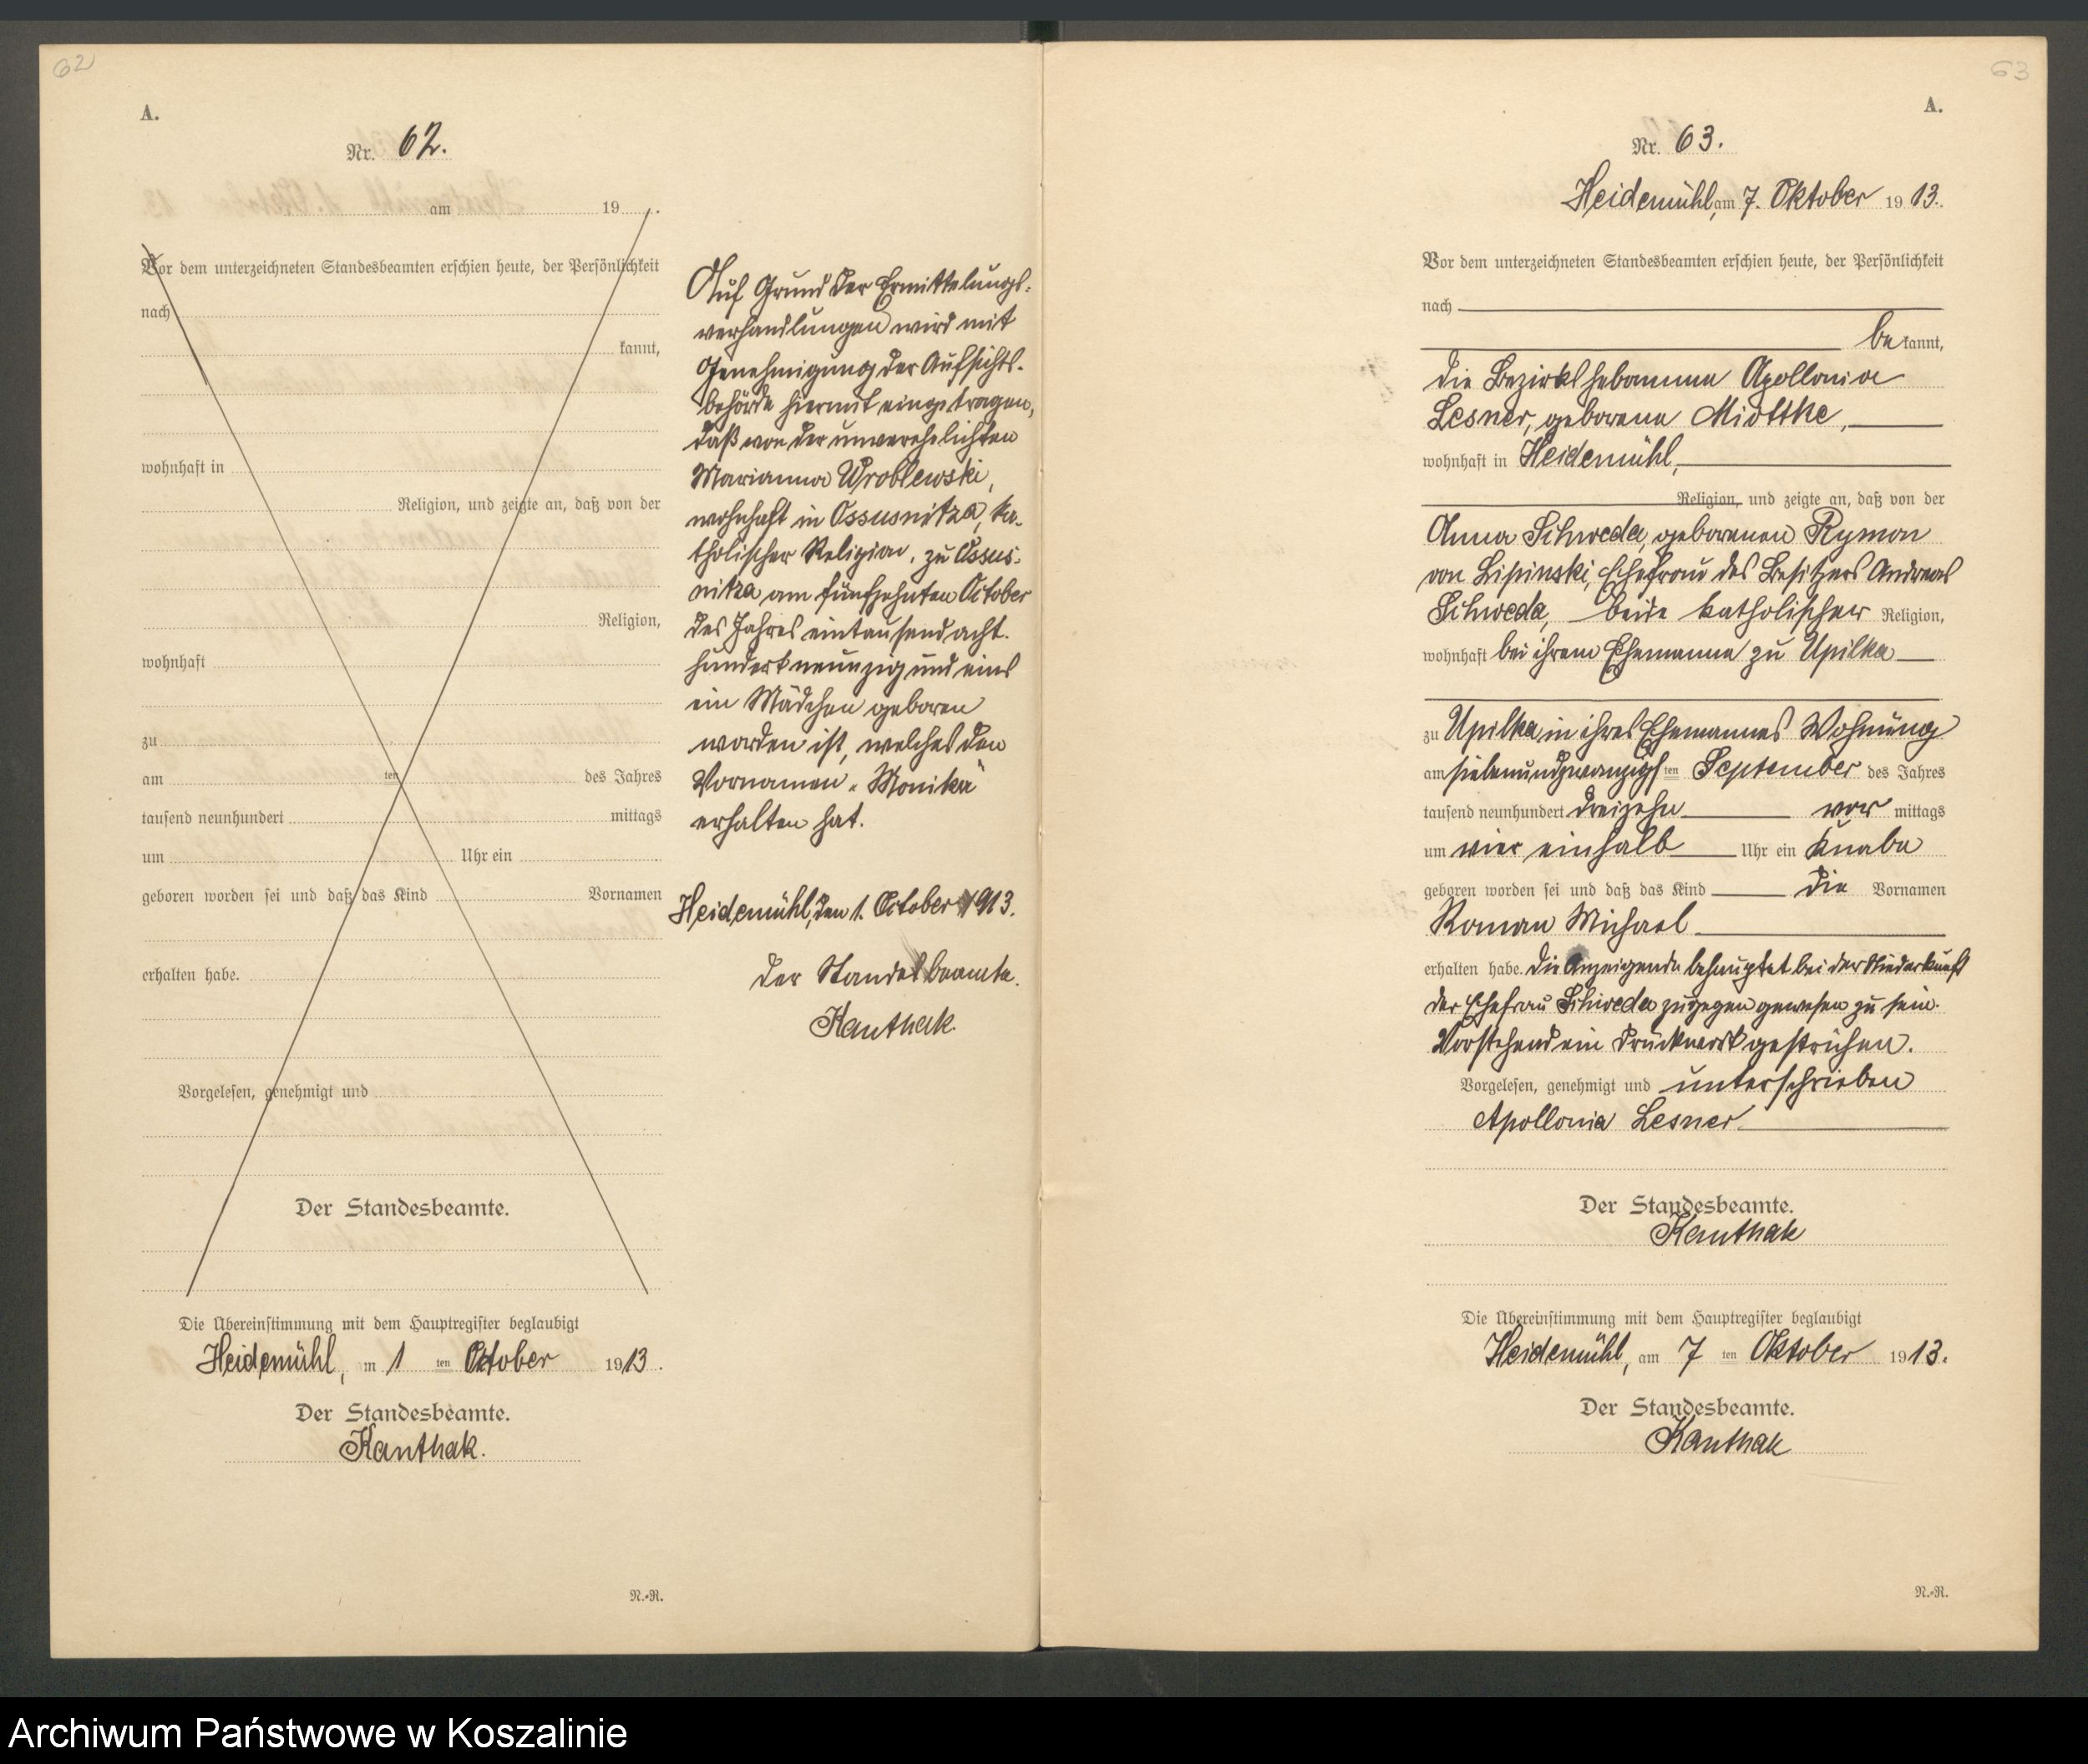 62
A.
Nr. 62.
am 19 .
Vor dem unterzeichneten Standesbeamten erschien heute, der Persönlichkeit
nach
kannt,
wohnhaft in
Religion, und zeigte an, daß von der
Religion,
wohnhaft
zu
am ten des Jahres
tausend neunhundert mittags
um Uhr ein
geboren worden sei und daß das Kind Vornamen
erhalten habe.
Vorgelesen, genehmigt und
Der Standesbeamte.
Die Übereinstimmung mit dem Hauptregister beglaubigt
Heidemühl, m 1 ten Oktober 1913.
Der Standesbeamte.
Kanthak.
N.-R.
Auf Grund der Ermittelungs-
verhandlungen wird mit
Genehmigung der Aufsichts-
behörde hiermit eingetragen,
daß von der unverehelichten
Marianna Wroblewski,
wohnhaft in Ossusnitza, ka-
tholischer Religion, zu Ossus-
nitza am fünfzehnten October
des Jahres eintausend acht-
hundert neunzig und eins
ein Mädchen geboren
worden ist, welches den
Vornamen „Monika"
erhalten hat.
Heidemühl, den 1. October 1913.
Der Standesbeamte.
Kanthak.
63
A.
Nr. 63.
Heidemühl, am 7. Oktober 1913.
Vor dem unterzeichneten Standesbeamten erschien heute, der Persönlichkeit
nach
bekannt,
die Bezirkshebamme Apollonia
Lesner, geborene Miottke,
wohnhaft in Heidemühl,
Religion, und zeigte an, daß von der
Anna Schweda, geborenen Rymon
von Lipinski, Ehefrau des Besitzers Andreas
Schweda, beide katholischer Religion,
wohnhaft bei ihrem Ehemanne zu Upilka
zu Upilka, in ihres Ehemannes Wohnung
am siebenundzwanzigsten September des Jahres
tausend neunhundert dreizehn vor mittags
um vier einhalb Uhr ein Knabe
geboren worden sei und daß das Kind die Vornamen
Roman Michael
erhalten habe. Die Anzeigende behauptet bei der Niederkunft
der Ehefrau Schweda zugegen gewesen zu sein.
Vorstehend ein Druckwort gestrichen.
Vorgelesen, genehmigt und unterschrieben
Apollonia Lesner
Der Standesbeamte.
Kanthak
Die Übereinstimmung mit dem Hauptregister beglaubigt
Heidemühl, am 7 ten Oktober 1913.
Der Standesbeamte.
Kanthak
N.-R.
Archiwum Państwowe w Koszalinie